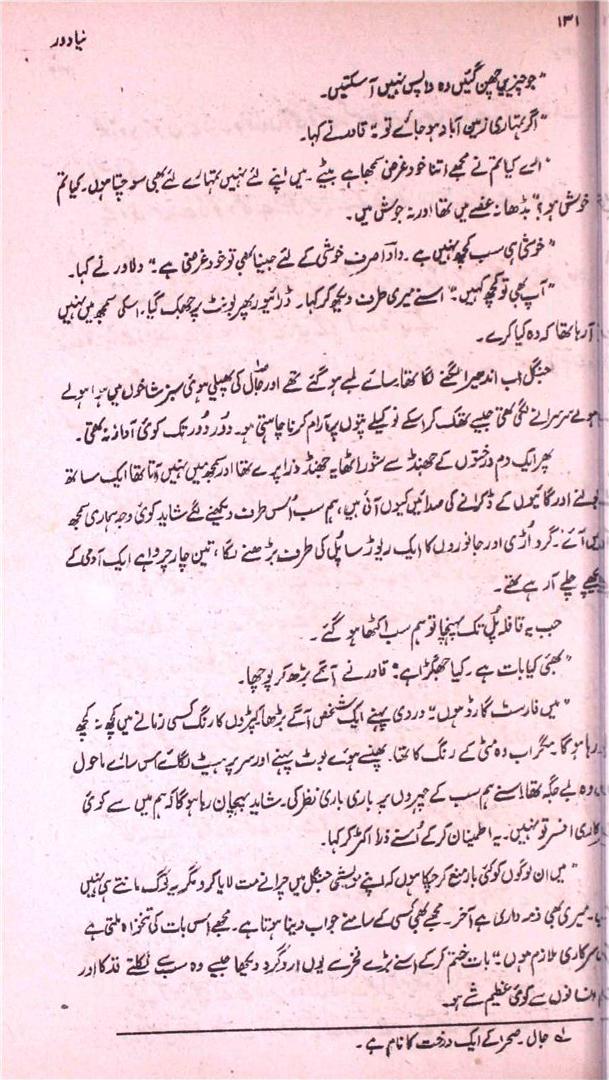 ۱۳۱
نیا دور
"جو چیزیں چھن گئیں وہ واپس نہیں آ سکتیں۔
"اگر تمہاری زمین آباد ہو جائے تو۔" قادر نے کہا۔
"ارے کیا تم نے مجھے اتنا خود غرض سمجھا ہے بیٹے۔ میں اپنے لئے نہیں تمہارے لئے بھی سوچتا ہوں۔ کیا تم
خوش ہو؟" بڈھا نہ غصے میں تھا اور نہ جوش میں۔
"خوشی ہی سب کچھ نہیں ہے۔ دادا صرف خوشی کے لئے جینا بھی تو خود غرضی ہے۔" دلاور نے کہا۔
"آپ بھی تو کچھ کہیں۔" اسنے میری طرف دیکھ کر کہا۔ ڈرائیور پھر بونٹ پر جھک گیا۔ اسکی سمجھ میں نہیں
آ رہا تھا کہ وہ کیا کرے۔
جنگل اب اندھیرا لگنے لگا تھا۔ سائے لمبے ہو گئے تھے اور جال کی پھیلی ہوئی سبز شاخوں میں ہوا ہولے
ہولے سرسرانے لگی تھی جیسے تھک کر اسکے نوکیلے پتوں پر آرام کرنا چاہتی ہو۔ دور دور تک کوئی آواز نہ تھی۔
پھر ایک دم درختوں کے جھنڈ سے شور اٹھا یہ جھنڈ ذرا پرے تھا اور سمجھ میں نہیں آتا تھا ایک ساتھ
بولنے اور گائیوں کے ڈکرانے کی صدائیں کیوں آئی ہیں، ہم سب اُس طرف دیکھنے لگے شاید کوئی وجہ ہماری سمجھ
میں آئے۔ گرد اُڑی اور جانوروں کا ایک ریوڑ سا پُل کی طرف بڑھنے لگا، تین چار چرواہے ایک آدمی کے
پیچھے چلے آ رہے تھے۔
جب یہ قافلہ پُل تک پہنچا تو ہم سب اکٹھا ہو گئے۔
"بھئی کیا بات ہے۔ کیا جھگڑا ہے؟" قادر نے آگے بڑھ کر پوچھا۔
"میں فارسٹ گارڈ ہوں۔" وردی پہنے ایک شخص آگے بڑھا کپڑوں کا رنگ کسی زمانے میں کچھ نہ کچھ
رہا ہو گا۔ مگر اب وہ مٹی کے رنگ کا تھا۔ پھنسے ہوئے بوٹ پہنے اور سر پر ہیٹ لگائے اس سارے ماحول
میں وہ بے جگہ تھا۔ اسنے ہم سب کے چہروں پر باری باری نظر کی۔ شاید پہچان رہا ہو گا کہ ہم میں سے کوئی
سرکاری افسر تو نہیں۔ یہ اطمینان کر کے اُسنے ذرا اکڑ کر کہا۔
"میں ان لوگوں کو کئی بار منع کر چکا ہوں کہ اپنے مویشی جنگل میں چرانے مت لایا کرو مگر یہ لوگ مانتے ہی نہیں
میری بھی ذمہ داری ہے آخر۔ مجھے بھی کسی کے سامنے جواب دینا ہوتا ہے۔ مجھے اس بات کی تنخواہ ملتی ہے
سرکاری ملازم ہوں۔" بات ختم کر کے اسنے بڑے فخر سے یوں ارد گرد دیکھا جیسے وہ سب سے نکلتے قد کا اور
سے کوئی عظیم شے ہو۔
لے جال۔ صحرا کے ایک درخت کا نام ہے۔